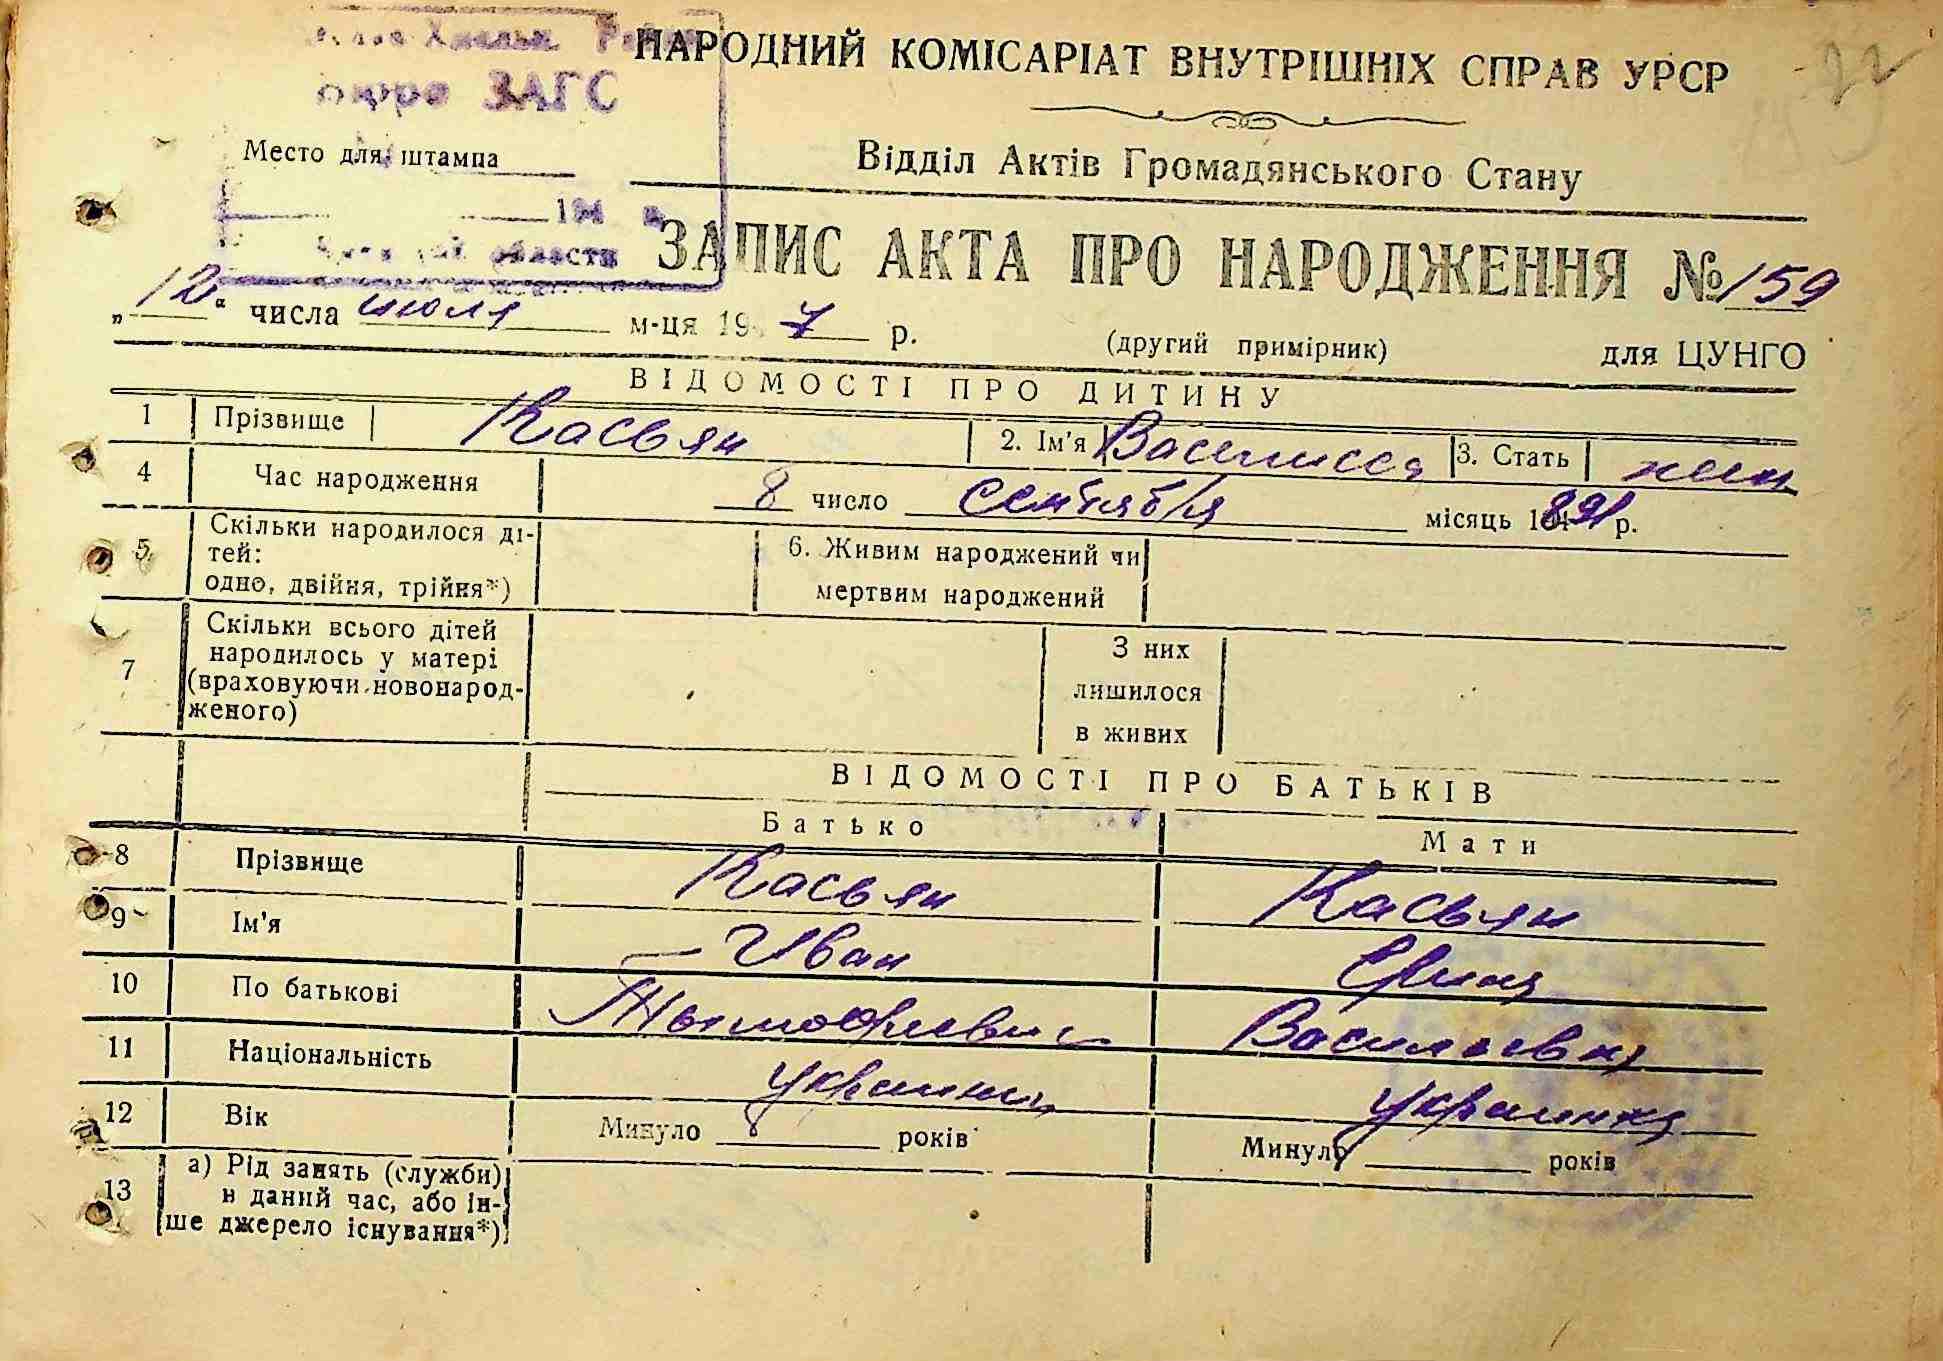 НАРОДНИЙ КОМІСАРІАТ ВНУТРІШНІХ СПРАВ УРСР
бюро ЗАГС
Место для штампа
Відділ Актів Громадянського Стану
194
области
ЗАПИС АКТА ПРО НАРОДЖЕННЯ № 159
„12“ числа июля м-ця 19 7 р. (другий примірник) для ЦУНГО
ВІДОМОСТІ ПРО ДИТИНУ
1 Прізвище Касьян 2. Ім'я 3. Стать жен
4 Час народження 8 число сентября місяць 1891 р.
5 Скільки народилося ді-
тей:
одно, двійня, трійня*)
6. Живим народжений чи
мертвим народжений
7 Скільки всього дітей
народилось у матері
(враховуючи новонарод-
женого)
З них
лишилося
в живих
ВІДОМОСТІ ПРО БАТЬКІВ
Батько Мати
8 Прізвище Касьян Касьян
9 Ім'я Иван
10 По батькові Васильевна
11 Національність украинец украинка
12 Вік Минуло років Минуло років
13 а) Рід занять (служби)
в даний час, або ін-
ше джерело існування*)